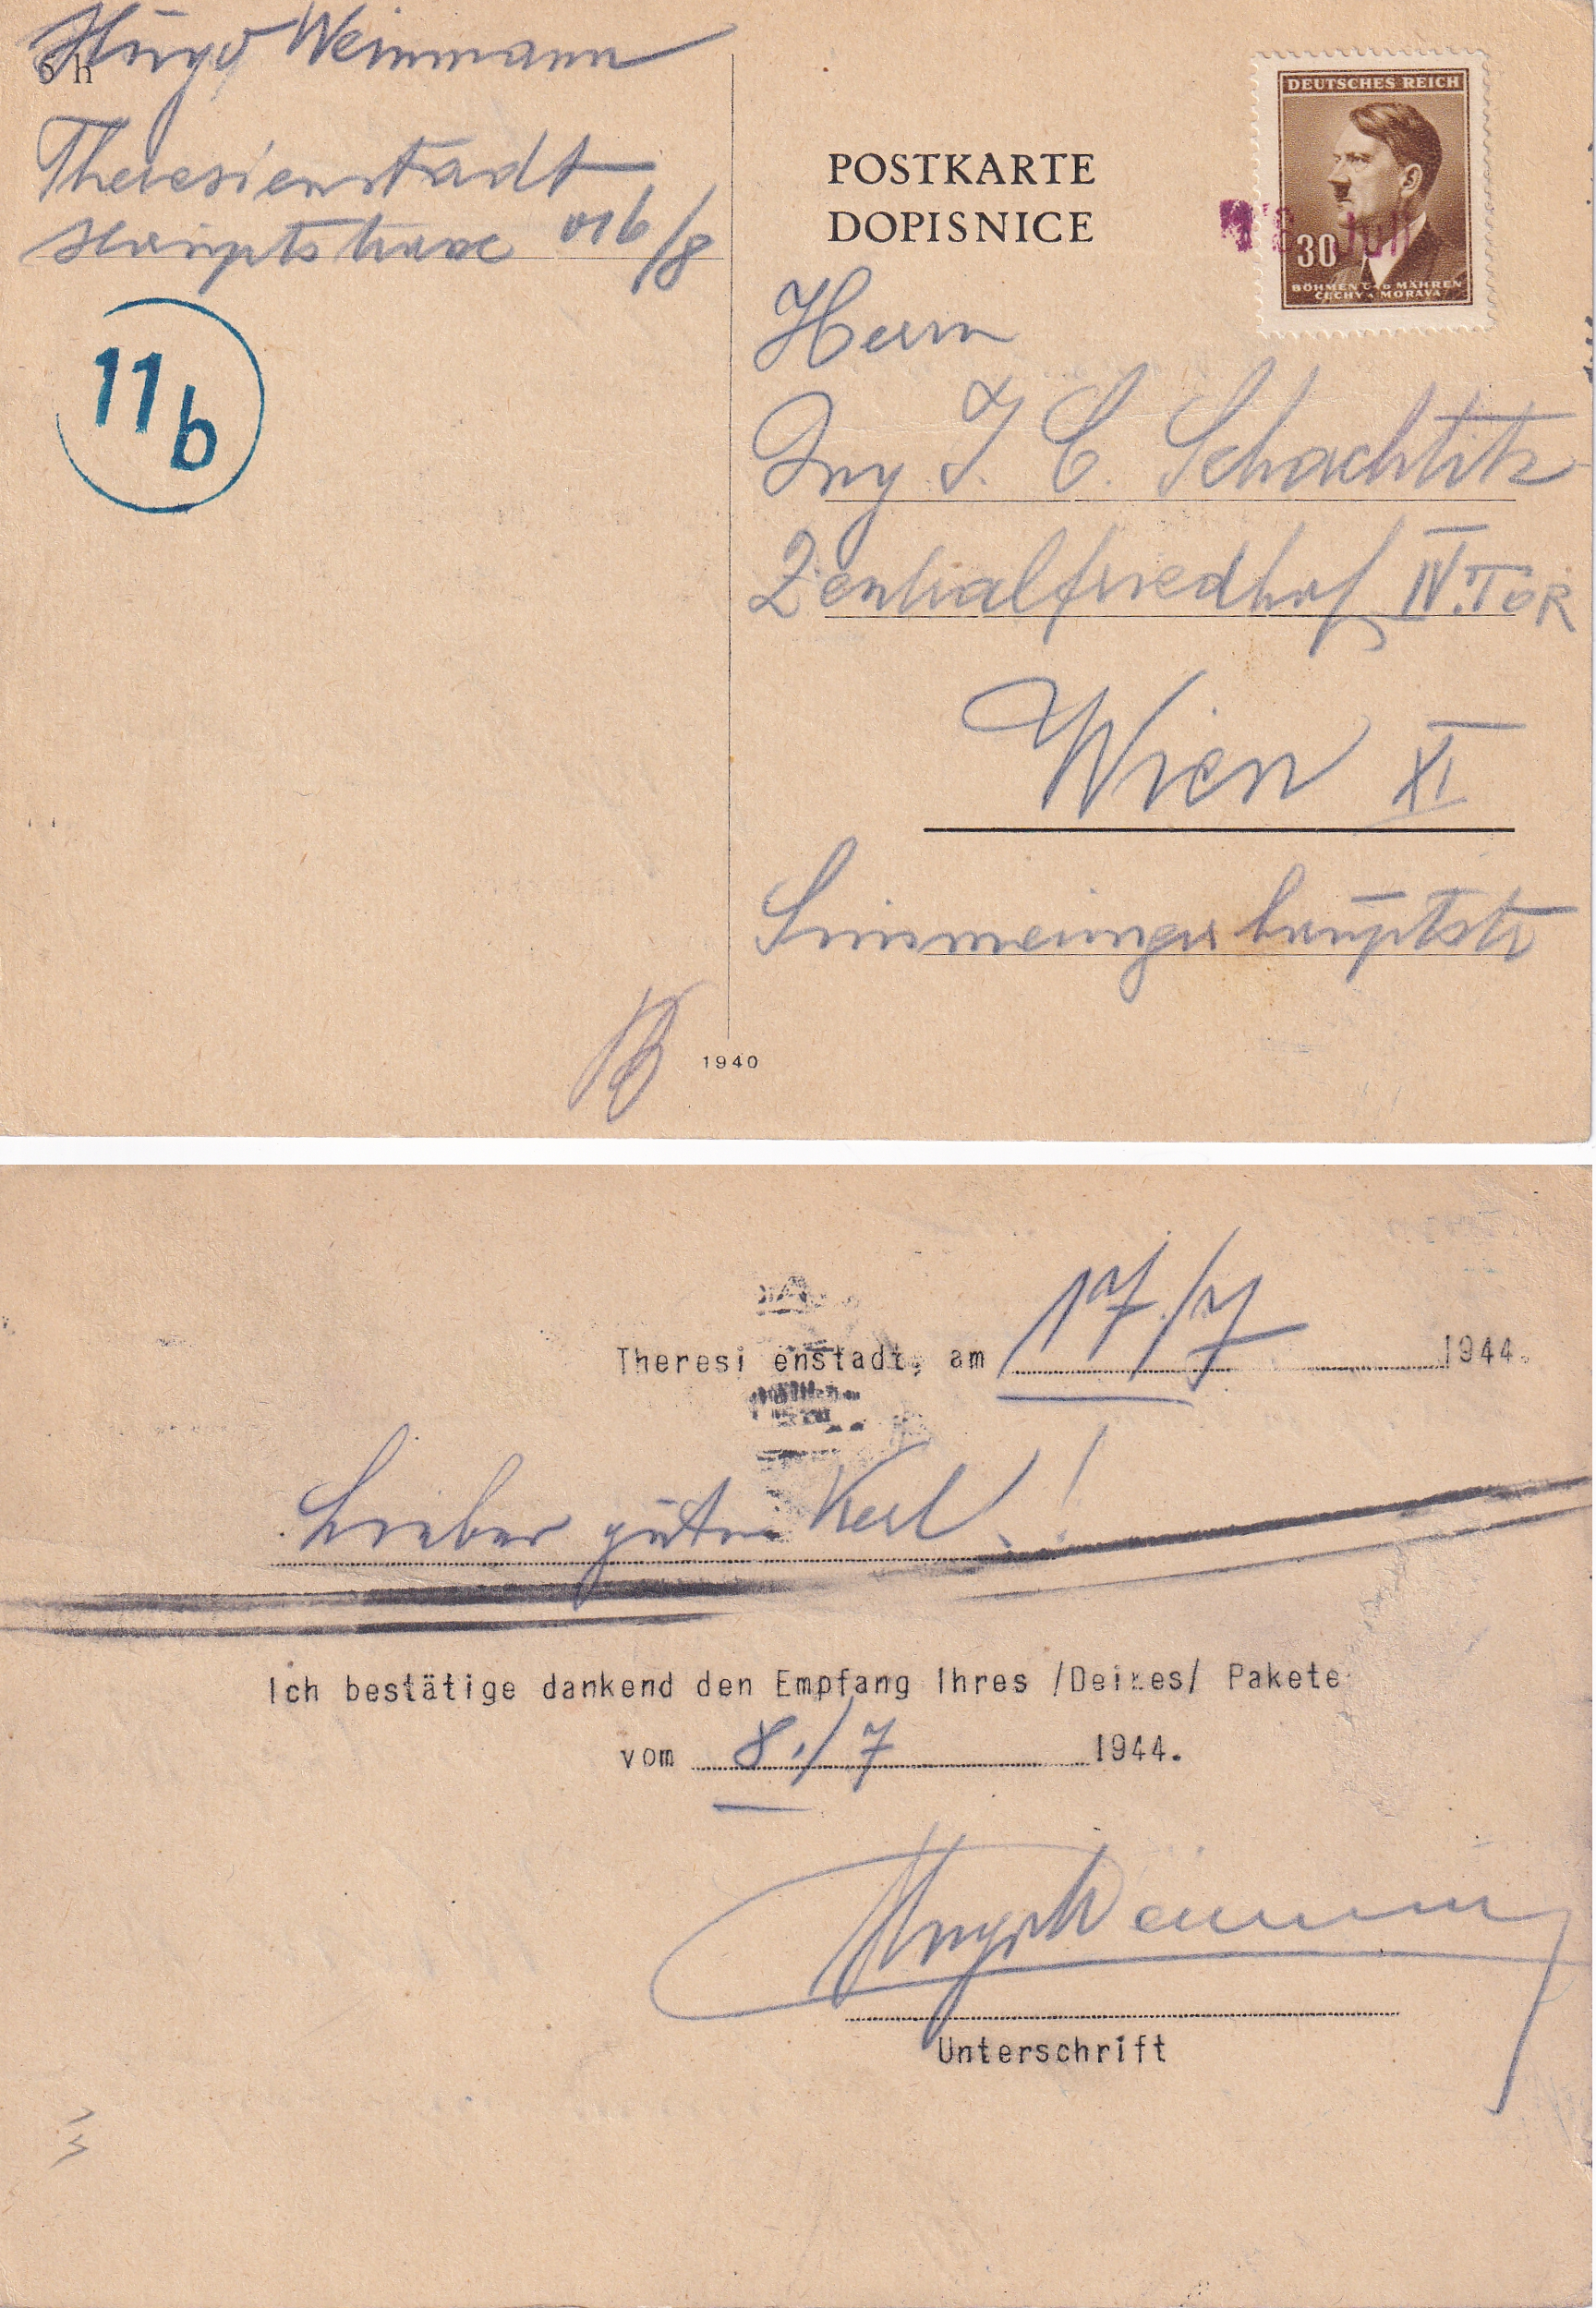 Hugo Weinmann
6 h
Theresienstadt
Hauptstrasse 016/8
11b
DEUTSCHES REICH
30
BÖHMEN UND MÄHREN
ČECHY A MORAVA
Juli
POSTKARTE
DOPISNICE
Herrn
Ing J. C. Schachtitz
Zentralfriedhof IV. TOR
Wien XI
Simmeringer hauptstr
1940
Theresienstadt, am 17/7 1944.
Lieber guter Kerl!
Ich bestätige dankend den Empfang Ihres /Deines/ Pakete
vom 8./7 1944.
Hugo Weinmann
Unterschrift